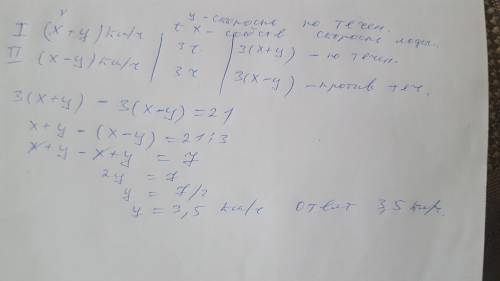 v t y - скорость по течен.
х - собств скорость лодк.
I (x+y) км/ч | 3ч | 3(x+y) - по течен.
II (x-y) км/ч | 3ч | 3(x-y) - против теч.
3(x+y) - 3(x-y) = 21
x+y - (x-y) = 21:3
x+y - x+y = 7
2y = 7
y = 7/2
y = 3,5 км/ч ответ 3,5 км/ч.